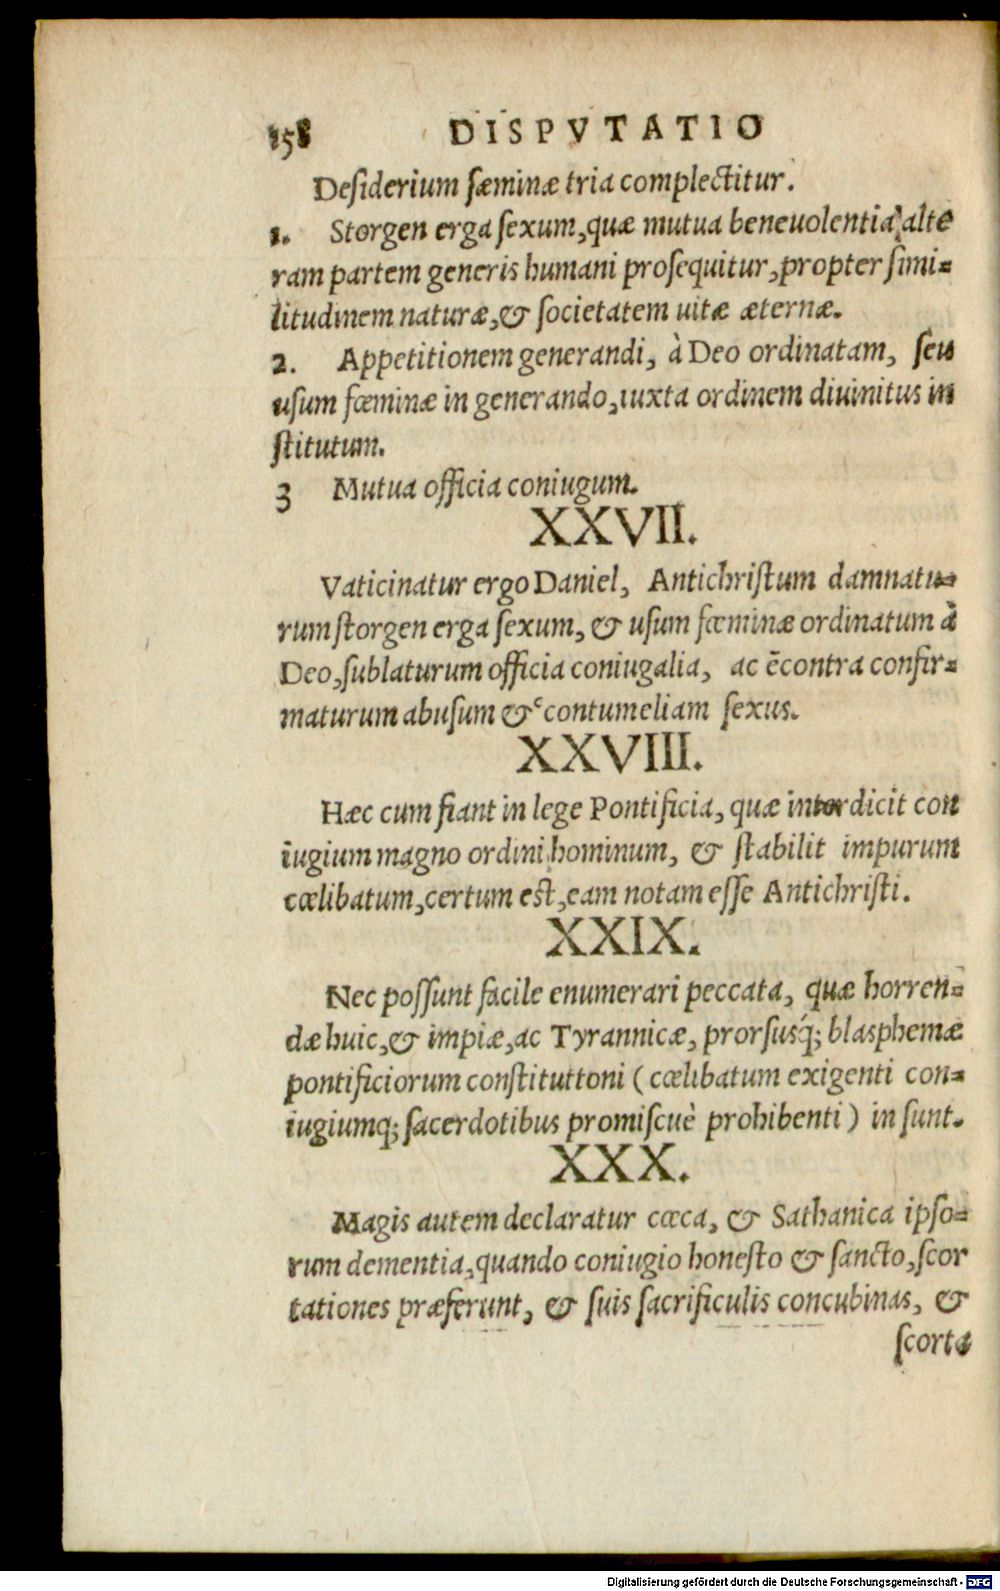 158 DISPVTATIO
Deſiderium fæminæ tria complectitur.
1. Storgen erga ſexum,quæ mutua beneuolentia alte
ram partem generis humani proſequitur,propter ſimi-
litudinem naturæ,& ſocietatem uitæ æternæ.
2. Appetitionem generandi, à Deo ordinatam, ſeu
uſum fœminæ in generando,iuxta ordinem diuinitus in
ſtitutum.
3 Mutua officia coniugum.
XXVII.
Vaticinatur ergo Daniel, Antichriſtum damnatu-
rum ſtorgen erga ſexum, & uſum fœminæ ordinatum à
Deo,ſublaturum officia coniugalia, ac ēcontra confir-
maturum abuſum & contumeliam ſexus.
XXVIII.
Hæc cum fiant in lege Pontificia, quæ interdicit con
iugium magno ordini hominum, & ſtabilit impurum
cœlibatum,certum eſt,eam notam eſſe Antichriſti.
XXIX.
Nec poſſunt facile enumerari peccata, quæ horren-
dæ huic,& impiæ,ac Tyrannicæ, prorſusq́; blasphemæ
pontificiorum conſtituttoni (cœlibatum exigenti con-
iugiumq; ſacerdotibus promiſcuè prohibenti) in ſunt.
XXX.
Magis autem declaratur cœca, & Sathanica ipſo-
rum dementia,quando coniugio honeſto & ſancto,ſcor
tationes præferunt, & ſuis ſacrificulis concubinas, &
ſcorta
Digitalisierung gefördert durch die Deutsche Forschungsgemeinschaft - DFG